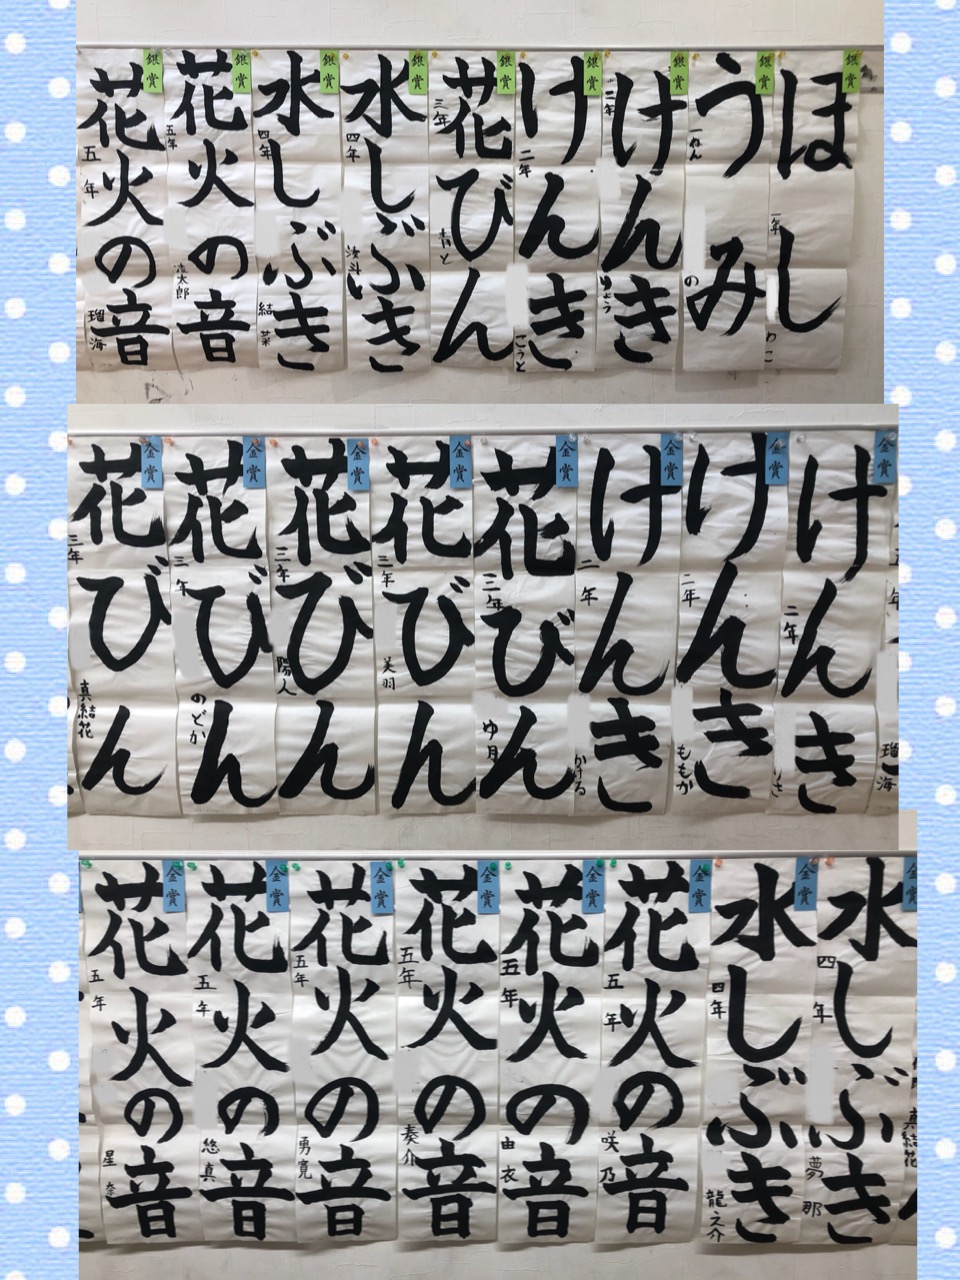 銀賞
ほし
一年
わこ
銀賞
うみ
一ねん
の
銀賞
げんき
二年
ゆきう
銀賞
げんき
二年
こうと
銀賞
花びん
三年
銀賞
水しぶき
四年
汝斗
銀賞
水しぶき
四年
結菜
銀賞
花火の音
五年
太郎
銀賞
花火の音
五年
瑠海
金賞
げんき
二年
金賞
げんき
二年
ももか
金賞
げんき
二年
かける
金賞
花びん
三年
ゆ月
金賞
花びん
三年
美羽
金賞
花びん
三年
陽人
金賞
花びん
三年
のどか
金賞
花びん
三年
真結花
瑠海
金賞
水しぶき
四年
夢那
金賞
水しぶき
四年
龍之介
金賞
花火の音
五年
咲乃
金賞
花火の音
五年
由衣
金賞
花火の音
五年
奏介
金賞
花火の音
五年
勇寛
金賞
花火の音
五年
悠真
金賞
花火の音
五年
星奈
真結花